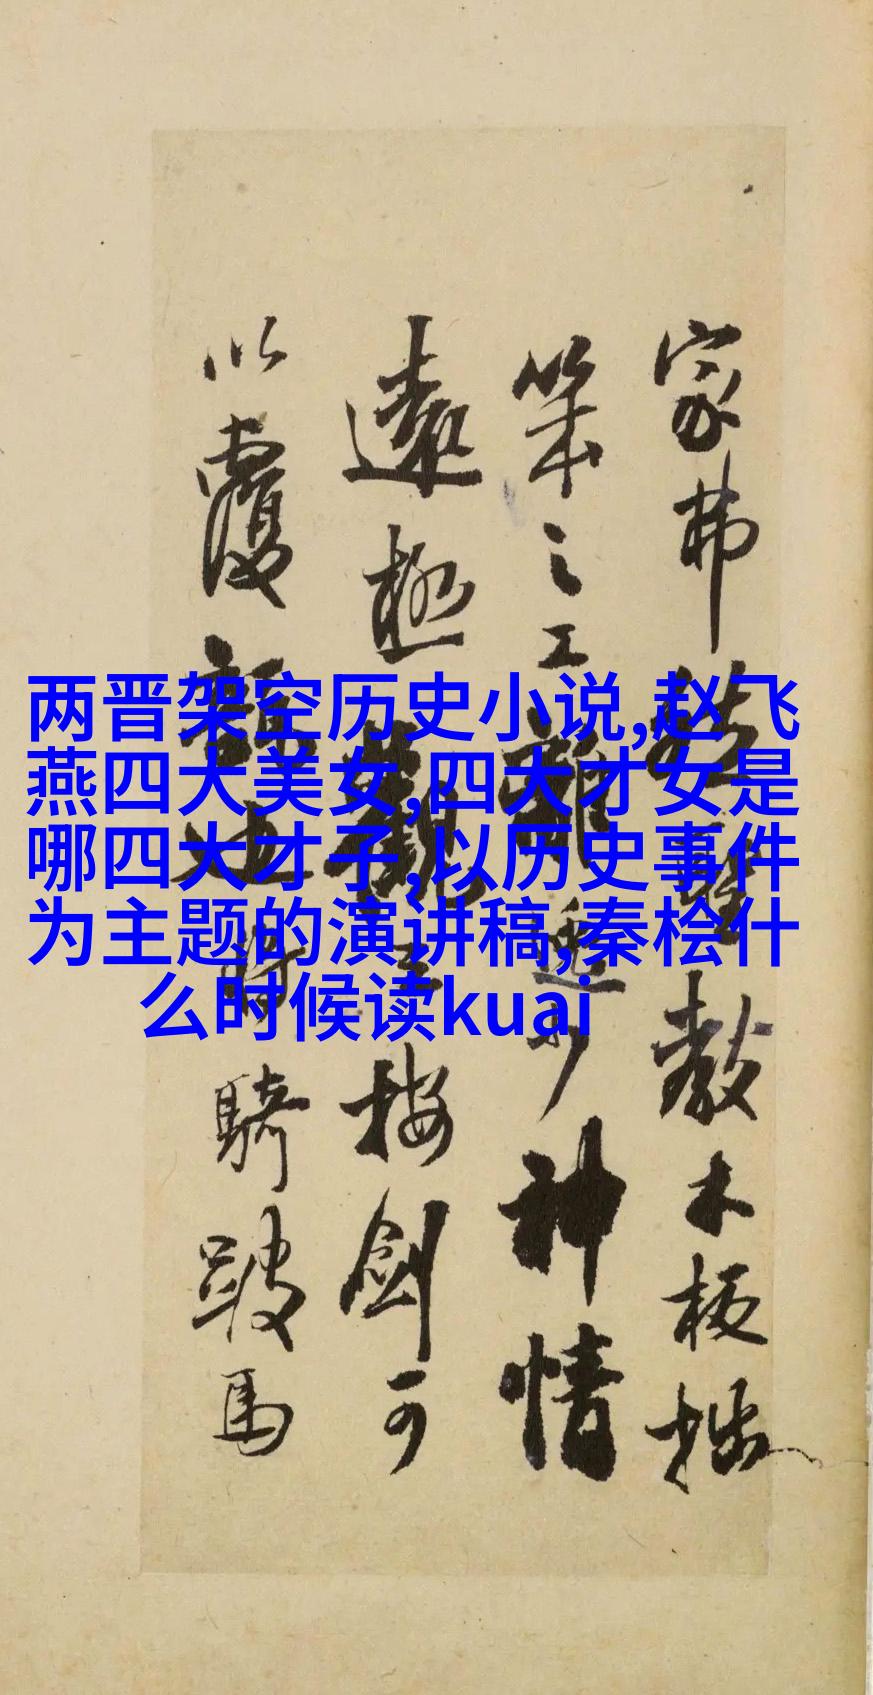 两晋架空历史小说,赵飞
燕四大美女,四大才女是
哪四大才子,以历史事件
为主题的演讲稿,秦桧什
么时候读kuai
家弗
木板拙
筆之工
神情
遠極
按劍可
以覆
騎跛馬